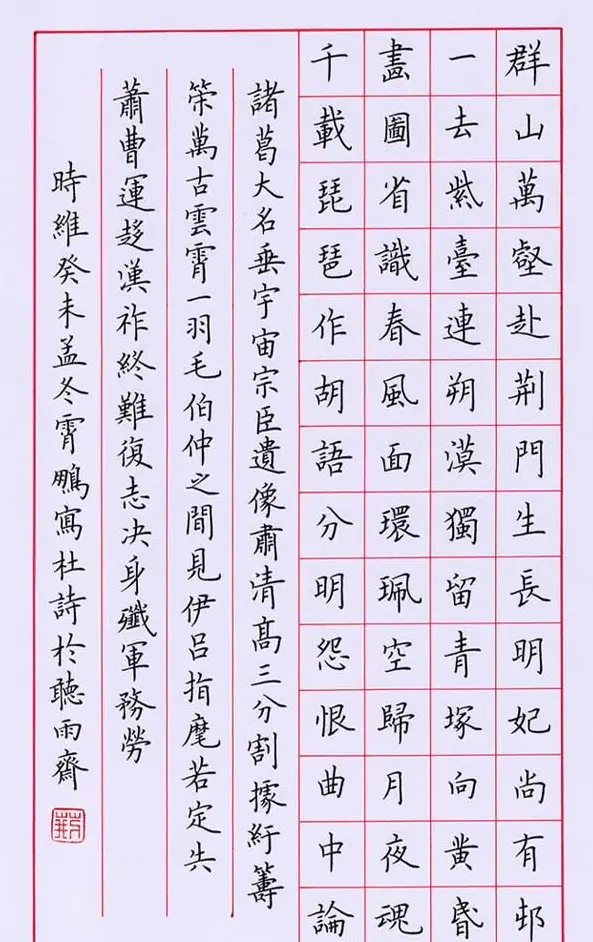 群山萬壑赴荆門生長明妃尚有邨
一去紫臺連朔漠獨留青塚向黄昏
畫圖省識春風面環珮空歸月夜魂
千載琵琶作胡語分明怨恨曲中論
諸葛大名垂宇宙宗臣遺像肅清高三分割據紆籌
策萬古雲霄一羽毛伯仲之間見伊吕指麾若定失
蕭曹運移漢祚終難復志决身殲軍務勞
時維癸未孟冬霄鵬寫杜詩於聽雨齋